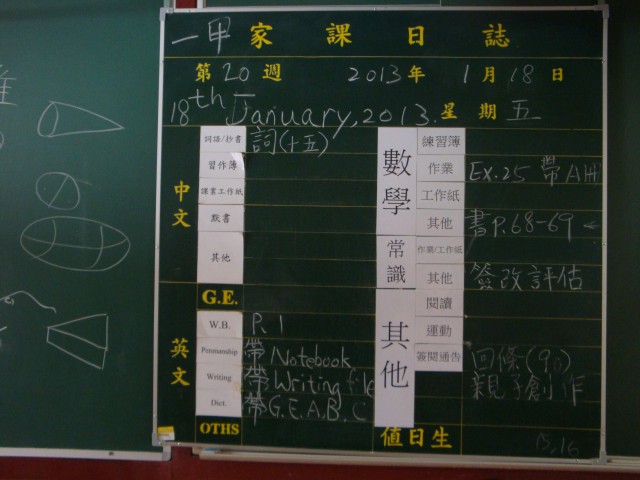 一甲 家課日誌
第20週 2013年 1月18日
18th January, 2013. 星期五
中文
詞語/抄書 詞(十五)
習作簿
課業工作紙
默書
其他
英文
G.E.
W.B. P.1
Penmanship 帶Notebook
Writing 帶Writing file
Dict. 帶G.E.A.B.C
OTHS
數學
練習簿
作業 Ex.25 帶A冊
工作紙
其他 書P.68-69
常識
作業/工作紙
其他 簽改評估
其他
閱讀
運動
簽閱通告 回條(90)
親子創作
值日生 15,16